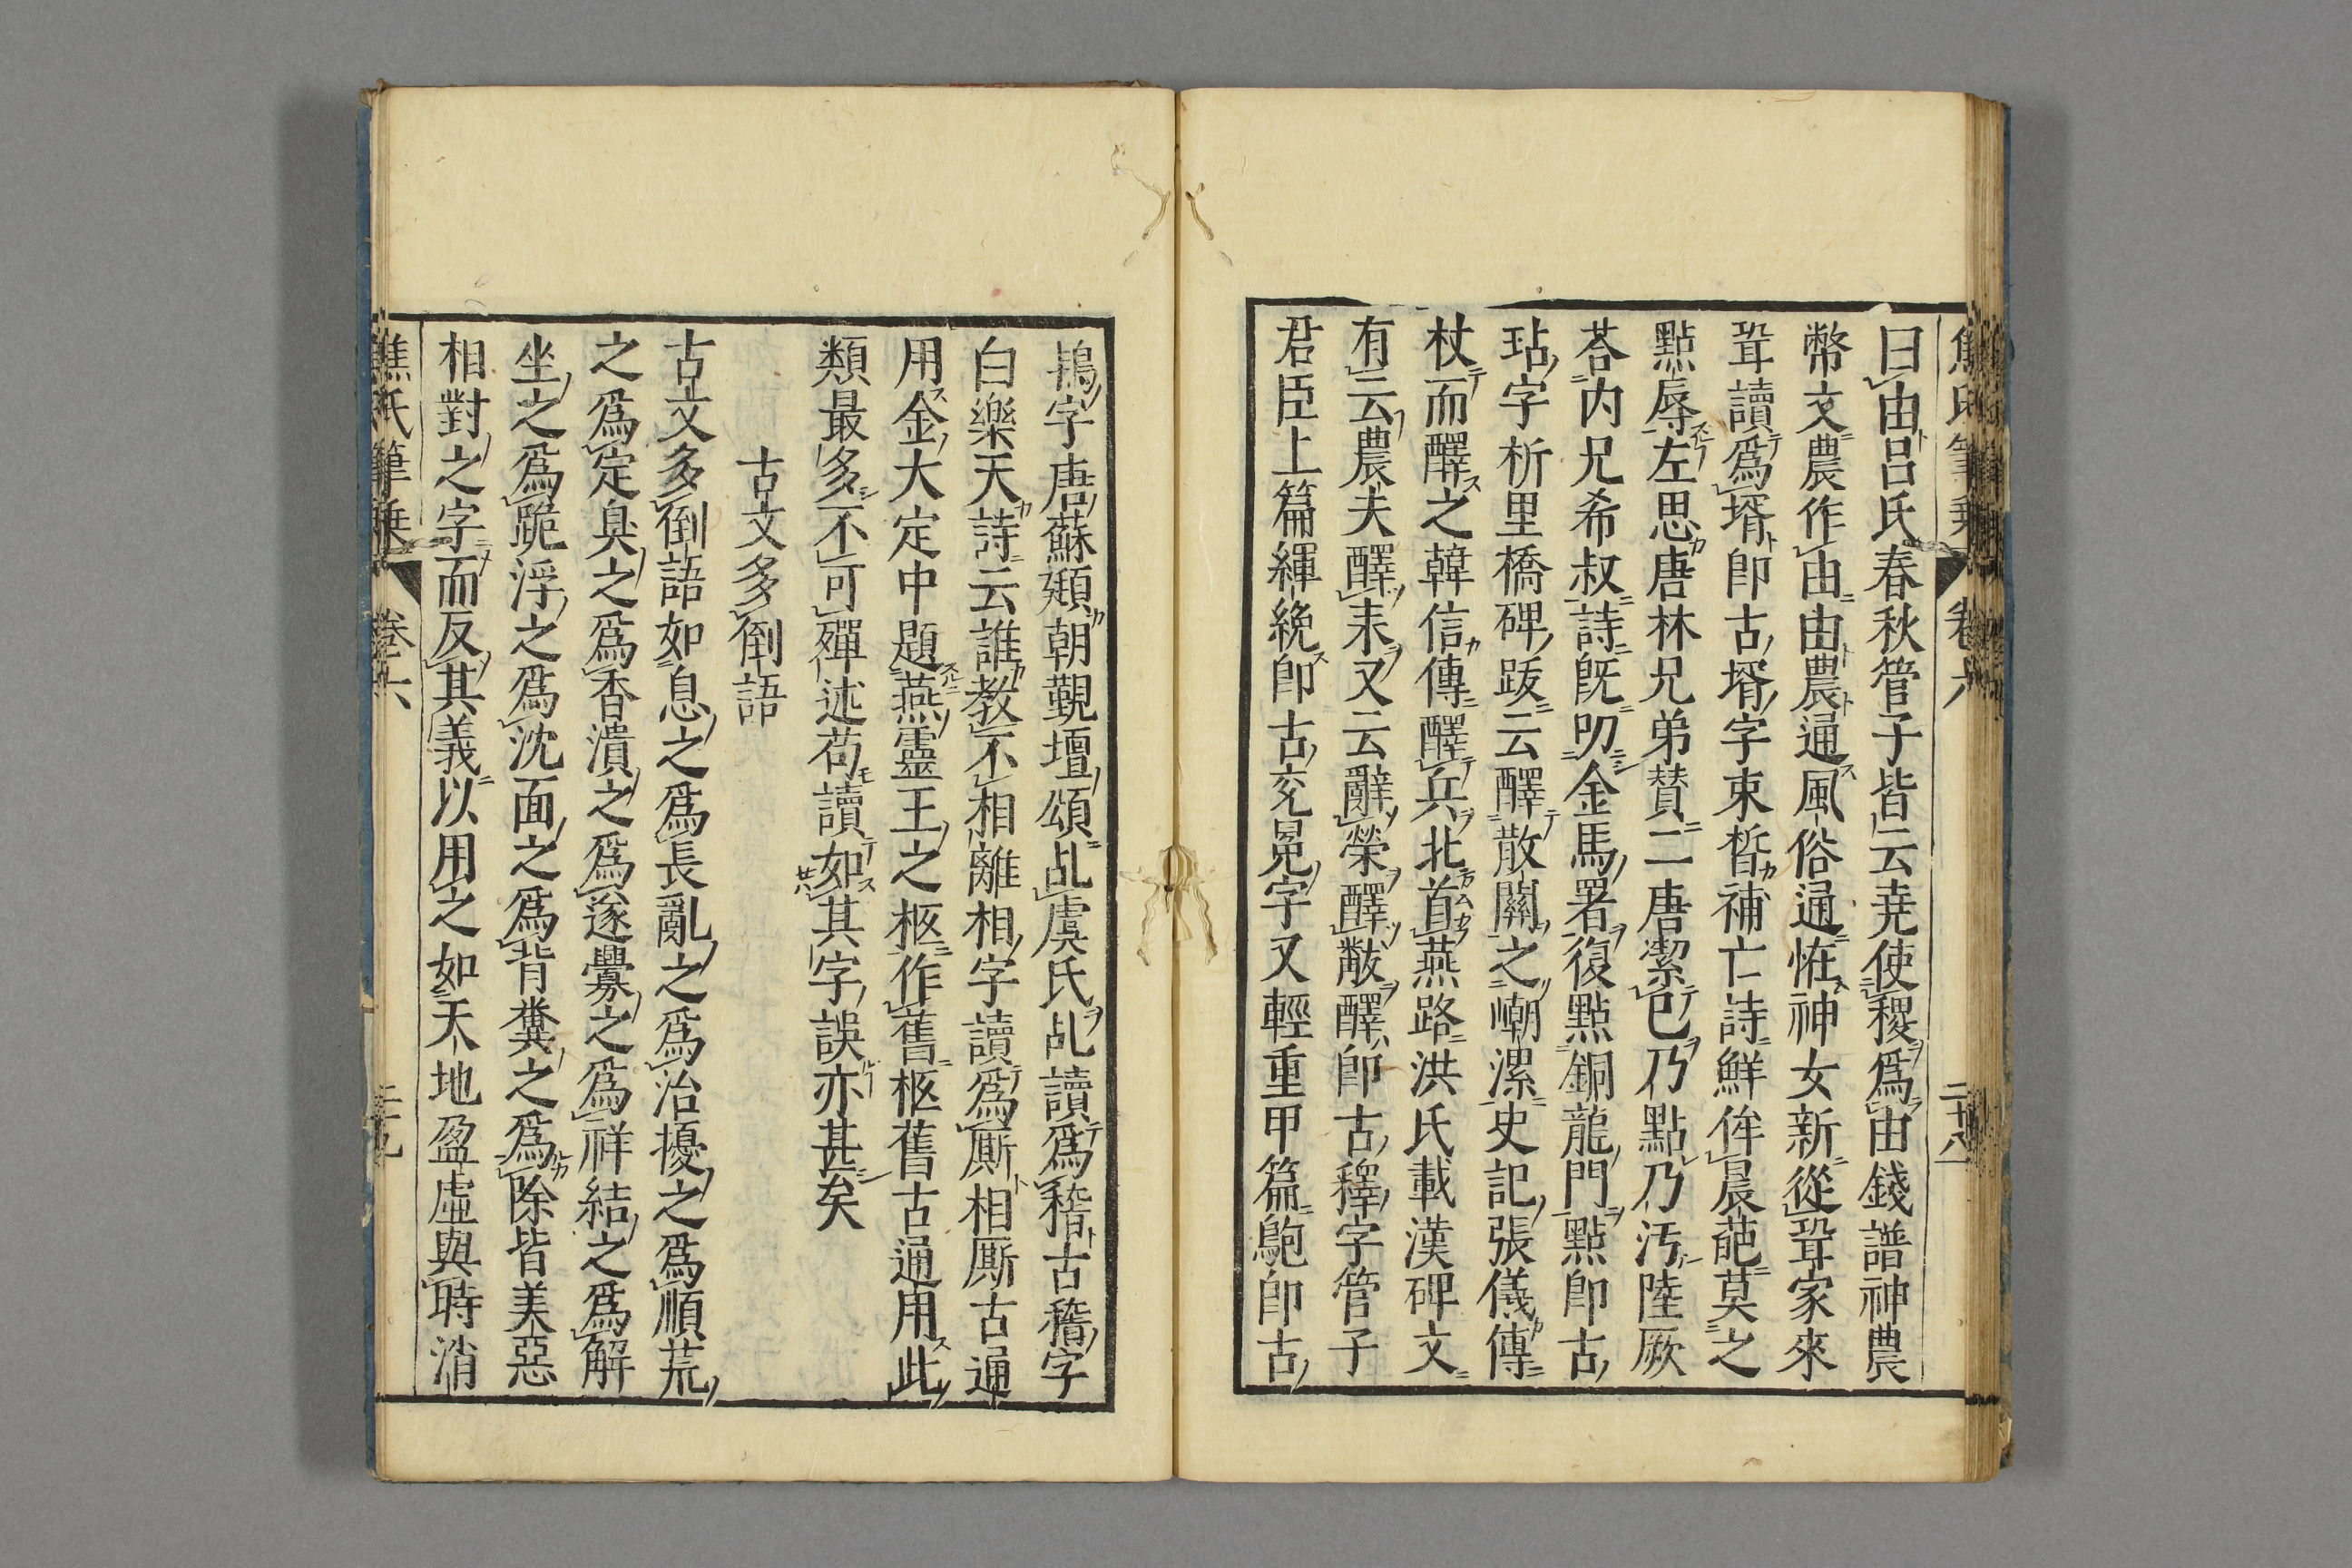 焦氏筆乘 卷六 二十八
曰由呂氏春秋管子皆云堯使稷爲由錢譜神農
幣文農作由由農通風俗通恠神女新從聟家來
聟讀爲壻卽古壻字束晳補亡詩鮮侔晨葩莫之
點辱左思唐林兄弟賛二唐潔已乃點乃汚陸厥
荅内兄希叔詩旣叨金馬署復點銅龍門點卽古
玷字析里橋碑跋云醳散關之嘲漯史記張儀傳
杖而醳之韓信傳醳兵北首燕路洪氏載漢碑文
有云農夫醳耒又云辭榮醳黻醳卽古釋字管子
君臣上篇緷絻卽古衮冕字又輕重甲篇鴕卽古
鴇字唐蘇頲朝覲壇頌乩虞氏乩讀爲稽古稽字
白樂天詩云誰教不相離相字讀爲厮相厮古通
用金大定中題燕靈王之柩作舊柩舊古通用此
類最多不可殫述苟讀如其字誤亦甚矣
古文多倒語
古文多倒語如息之爲長亂之爲治擾之爲順荒
之爲定臭之爲香潰之爲遂釁之爲祥結之爲解
坐之爲跪浮之爲沈面之爲背糞之爲除皆美惡
相對之字而反其義以用之如天地盈虛與時消
焦氏筆乘 卷六 二十九